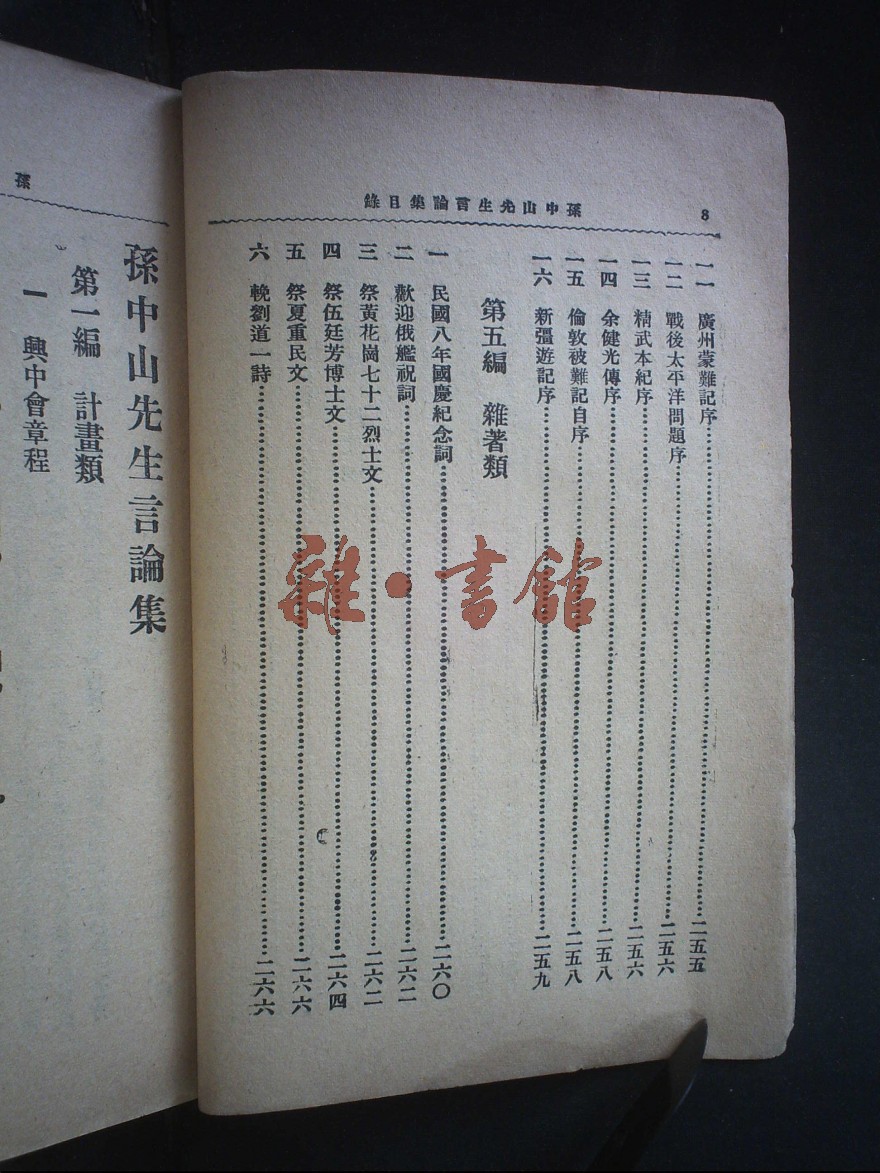 孫中山先生言論集目錄
8
一一 廣州蒙難記序 二五五
一二 戰後太平洋問題序 二五六
一三 精武本紀序 二五六
一四 余健光傳序 二五八
一五 倫敦被難記自序 二五八
一六 新疆遊記序 二五九
第五編 雜著類
一 民國八年國慶紀念詞 二六〇
二 歡迎俄艦祝詞 二六二
三 祭黃花崗七十二烈士文 二六二
四 祭伍廷芳博士文 二六四
五 祭夏重民文 二六六
六 輓劉道一詩 二六六
孫
孫中山先生言論集
第一編 計畫類
一 興中會章程
雜·書館